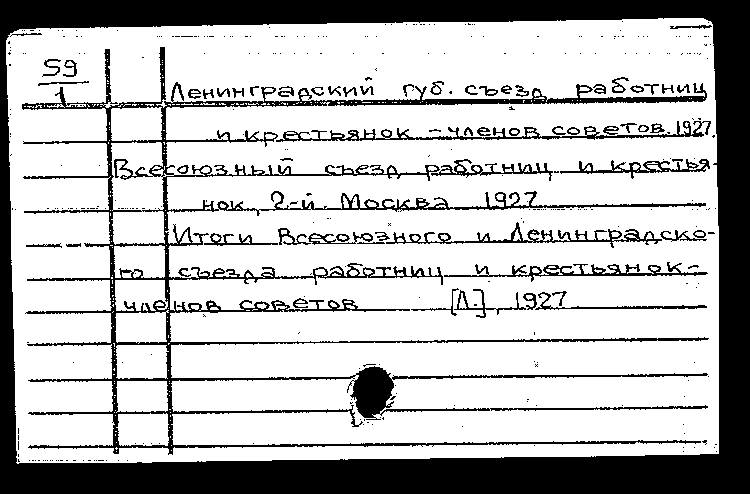 59
1
Ленинградский губ. съезд работниц
и крестьянок - членов советов. 1927.
Всесоюзный съезд работниц и крестья-
нок, 2-й. Москва 1927
Итоги Всесоюзного и Ленинградско-
го съезда работниц и крестьянок-
членов советов [Л.], 1927